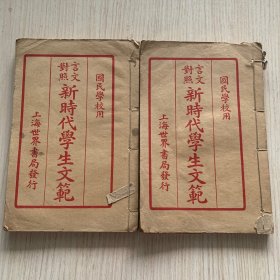 國民學校用
言文
對照
新時代學生文範
上海世界書局發行
國民學校用
言文
對照
新時代學生文範
上海世界書局發行